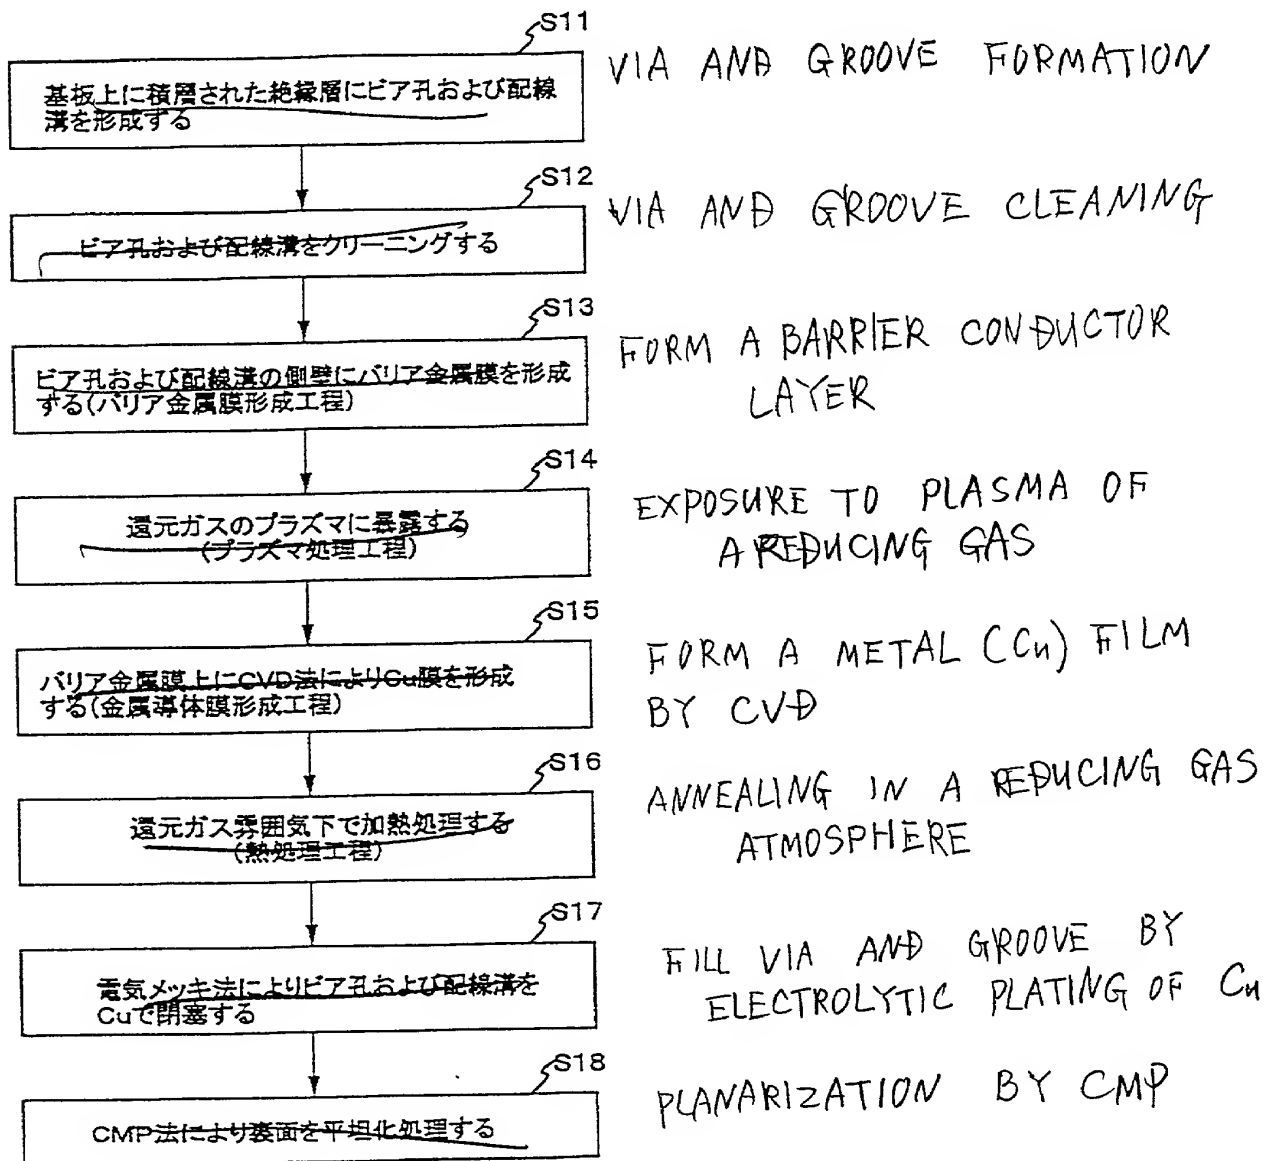 S11
基板上に積層された絶縁層にビア孔および配線
溝を形成する
VIA AND GROOVE FORMATION
S12
ビア孔および配線溝をクリーニングする
VIA AND GROOVE CLEANING
S13
ビア孔および配線溝の側壁にバリア金属膜を形成
する(バリア金属膜形成工程)
FORM A BARRIER CONDUCTOR
LAYER
S14
還元ガスのプラズマに暴露する
(プラズマ処理工程)
EXPOSURE TO PLASMA OF
A REDUCING GAS
S15
バリア金属膜上にCVD法によりCu膜を形成
する(金属導体膜形成工程)
FORM A METAL (Cu) FILM
BY CVD
S16
還元ガス雰囲気下で加熱処理する
(熱処理工程)
ANNEALING IN A REDUCING GAS
ATMOSPHERE
S17
電気メッキ法によりビア孔および配線溝を
Cuで閉塞する
FILL VIA AND GROOVE BY
ELECTROLYTIC PLATING OF Cu
S18
CMP法により裏面を平坦化処理する
PLANARIZATION BY CMP